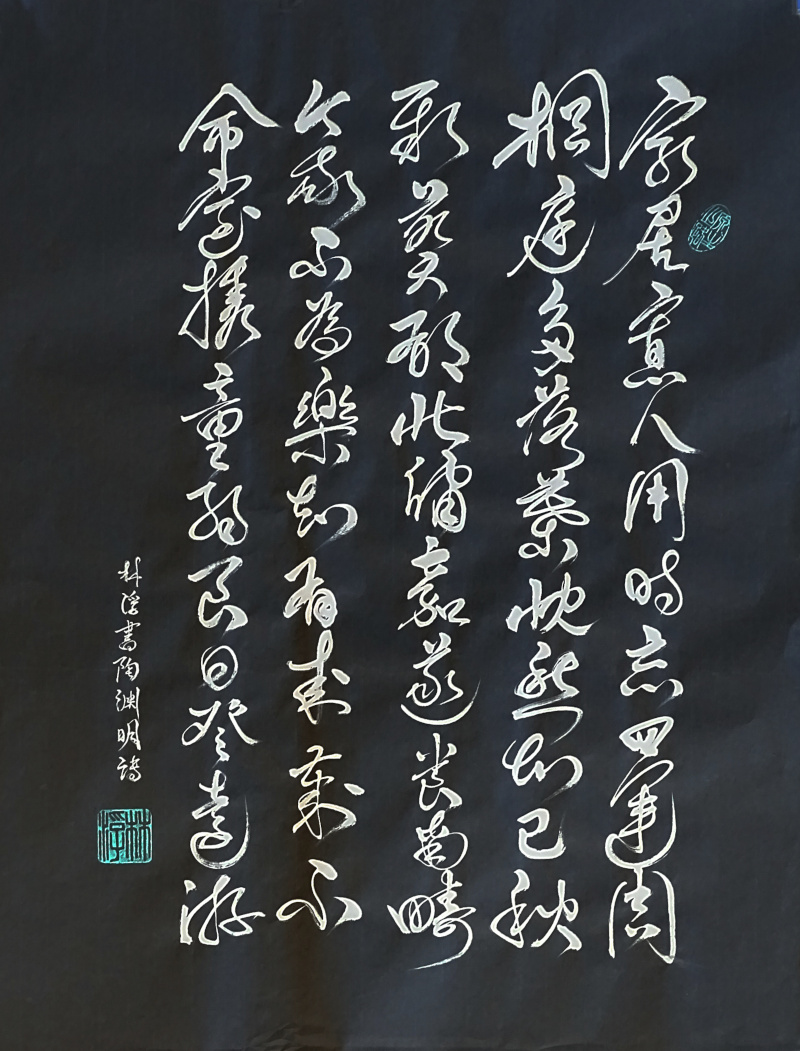 窮居寡人用時忘四運周
櫚庭多落葉慨然知已秋
新葵郁北牖嘉穟養南疇
今我不為樂知有來歲不
命室攜童弱良日登遠游
林浮書陶淵明詩